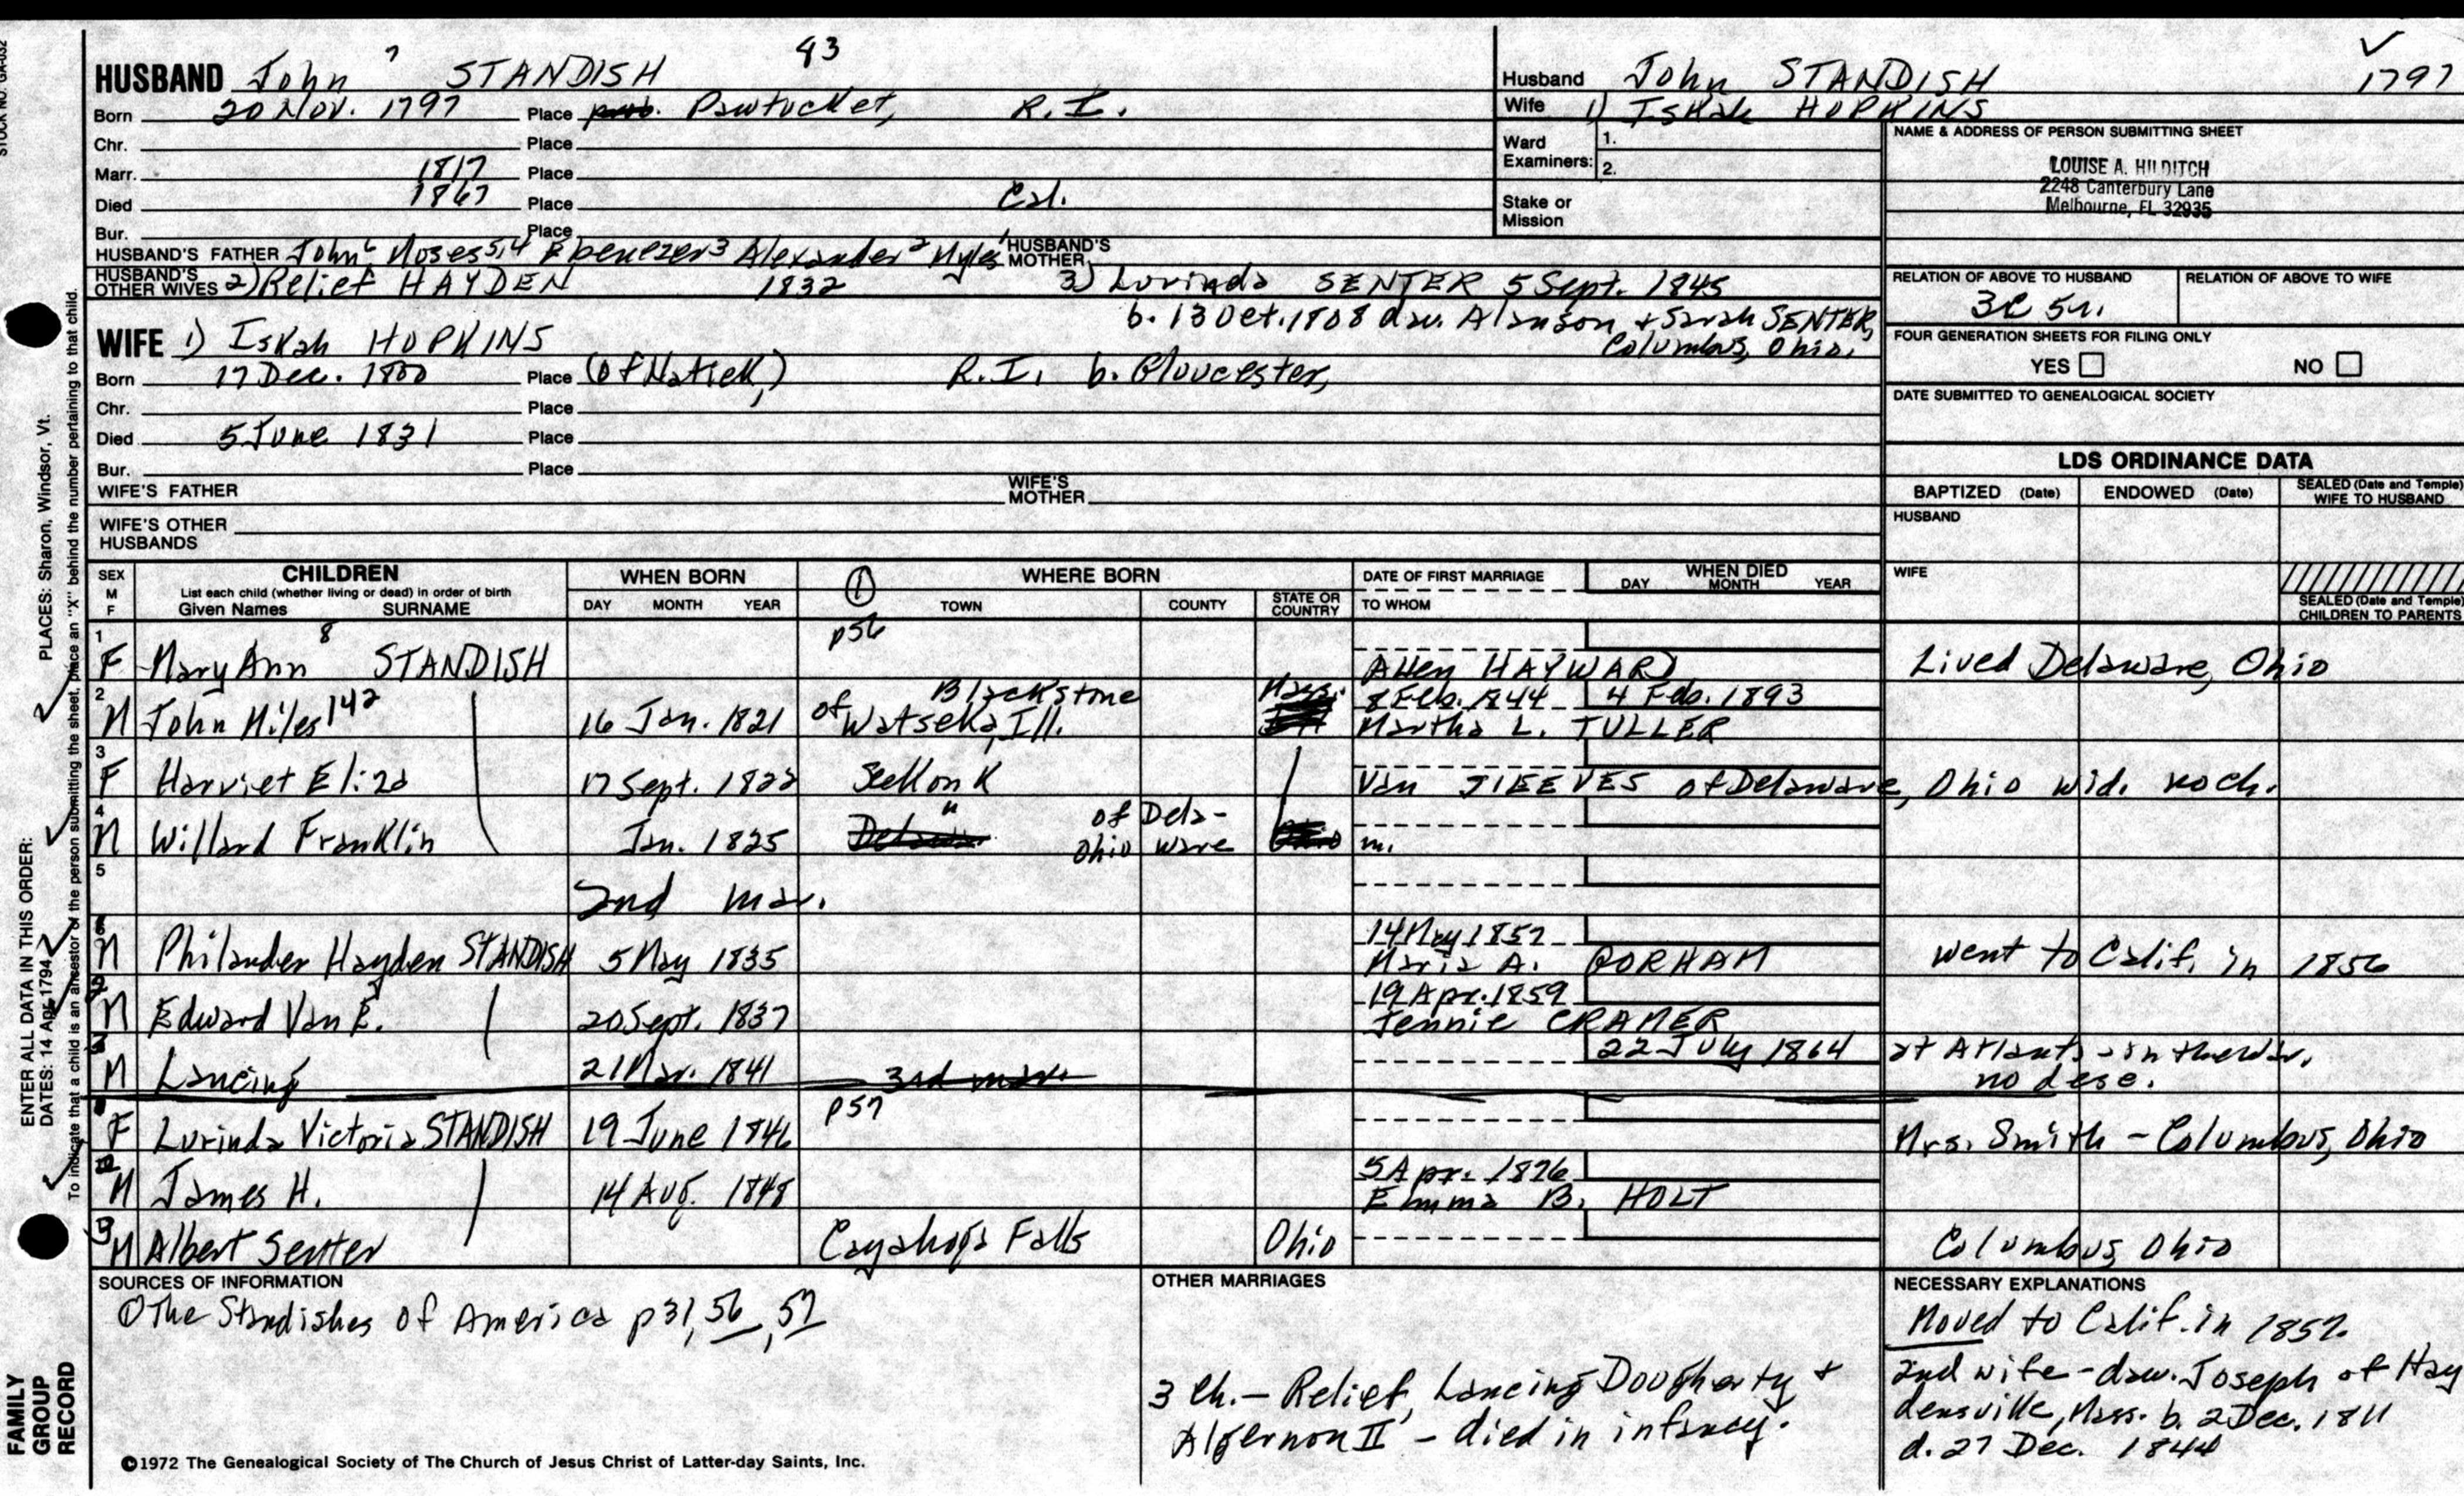 STOCK NO. GA-032
HUSBAND John 7 STANDISH 93
Born 20 Nov. 1797 Place prob. Pawtucket, R.I.
Chr. Place
Marr. 1817 Place
Died 1867 Place Cal.
Bur. Place
HUSBAND'S FATHER John6 Moses5,4 Ebenezer3 Alexander2 Myles1 HUSBAND'S MOTHER
HUSBAND'S OTHER WIVES 2) Relief HAYDEN 1832 3) Lurinda SENTER 5 Sept. 1845
b. 13 Oct. 1808 dau. Alanson + Sarah SENTER,
Columbus, Ohio.
WIFE 1) Iskah HOPKINS
Born 17 Dec. 1800 Place (of Natick,) R.I. b. Gloucester,
Chr. Place
Died 5 June 1831 Place
Bur. Place
WIFE'S FATHER WIFE'S MOTHER
WIFE'S OTHER HUSBANDS
Husband John STANDISH 1797
Wife 1) Iskah HOPKINS
Ward Examiners: 1.
2.
Stake or Mission
NAME & ADDRESS OF PERSON SUBMITTING SHEET
LOUISE A. HILDITCH
2248 Canterbury Lane
Melbourne, FL 32935
RELATION OF ABOVE TO HUSBAND RELATION OF ABOVE TO WIFE
3C 5r.
FOUR GENERATION SHEETS FOR FILING ONLY
YES NO
DATE SUBMITTED TO GENEALOGICAL SOCIETY
LDS ORDINANCE DATA
BAPTIZED (Date) ENDOWED (Date) SEALED (Date and Temple) WIFE TO HUSBAND
HUSBAND
WIFE
SEALED (Date and Temple) CHILDREN TO PARENTS
SEX M F CHILDREN List each child (whether living or dead) in order of birth Given Names SURNAME WHEN BORN DAY MONTH YEAR ① WHERE BORN TOWN COUNTY STATE OR COUNTRY DATE OF FIRST MARRIAGE TO WHOM WHEN DIED DAY MONTH YEAR
1 F Mary Ann 8 STANDISH p56 Allen HAYWARD Lived Delaware, Ohio
2 M John Miles 142 16 Jan. 1821 Blackstone of Watseka, Ill. Mass. 8 Feb. 1844 4 Feb. 1893
Martha L. TULLER
3 F Harriet Eliza 17 Sept. 1822 Seekonk Van JIEEVES of Delaware, Ohio wid. no ch.
4 M Willard Franklin Jan. 1825 " of Dela-
Ohio ware m.
5 2nd mar.
6 M Philander Hayden STANDISH 5 May 1835 14 May 1857
Maria A. GORHAM went to Calif. in 1856
7 M Edward Van E. 20 Sept. 1837 19 Apr. 1859
Jennie CRAMER
M Lancing 21 Mar. 1841 3rd mar. 22 July 1864 at Atlanta - in the war,
no desc.
F Lurinda Victoria STANDISH 19 June 1846 p57 Mrs. Smith - Columbus, Ohio
M James H. 14 Aug. 1848 5 Apr. 1876
Emma B. HOLT
M Albert Senter Cayahoga Falls Ohio Columbus, Ohio
SOURCES OF INFORMATION
① The Standishes of America p31, 56, 57
OTHER MARRIAGES
3 ch. - Relief, Lancing Dougherty +
Algernon II - died in infancy.
NECESSARY EXPLANATIONS
Moved to Calif. in 1857.
2nd wife - dau. Joseph of Hay
densville, Mass. b. 2 Dec. 1811
d. 27 Dec. 1844
©1972 The Genealogical Society of The Church of Jesus Christ of Latter-day Saints, Inc.
FAMILY GROUP RECORD
ENTER ALL DATA IN THIS ORDER:
DATES: 14 Apr 1794
PLACES: Sharon, Windsor, Vt.
To indicate that a child is an ancestor of the person submitting the sheet, place an "X" behind the number pertaining to that child.